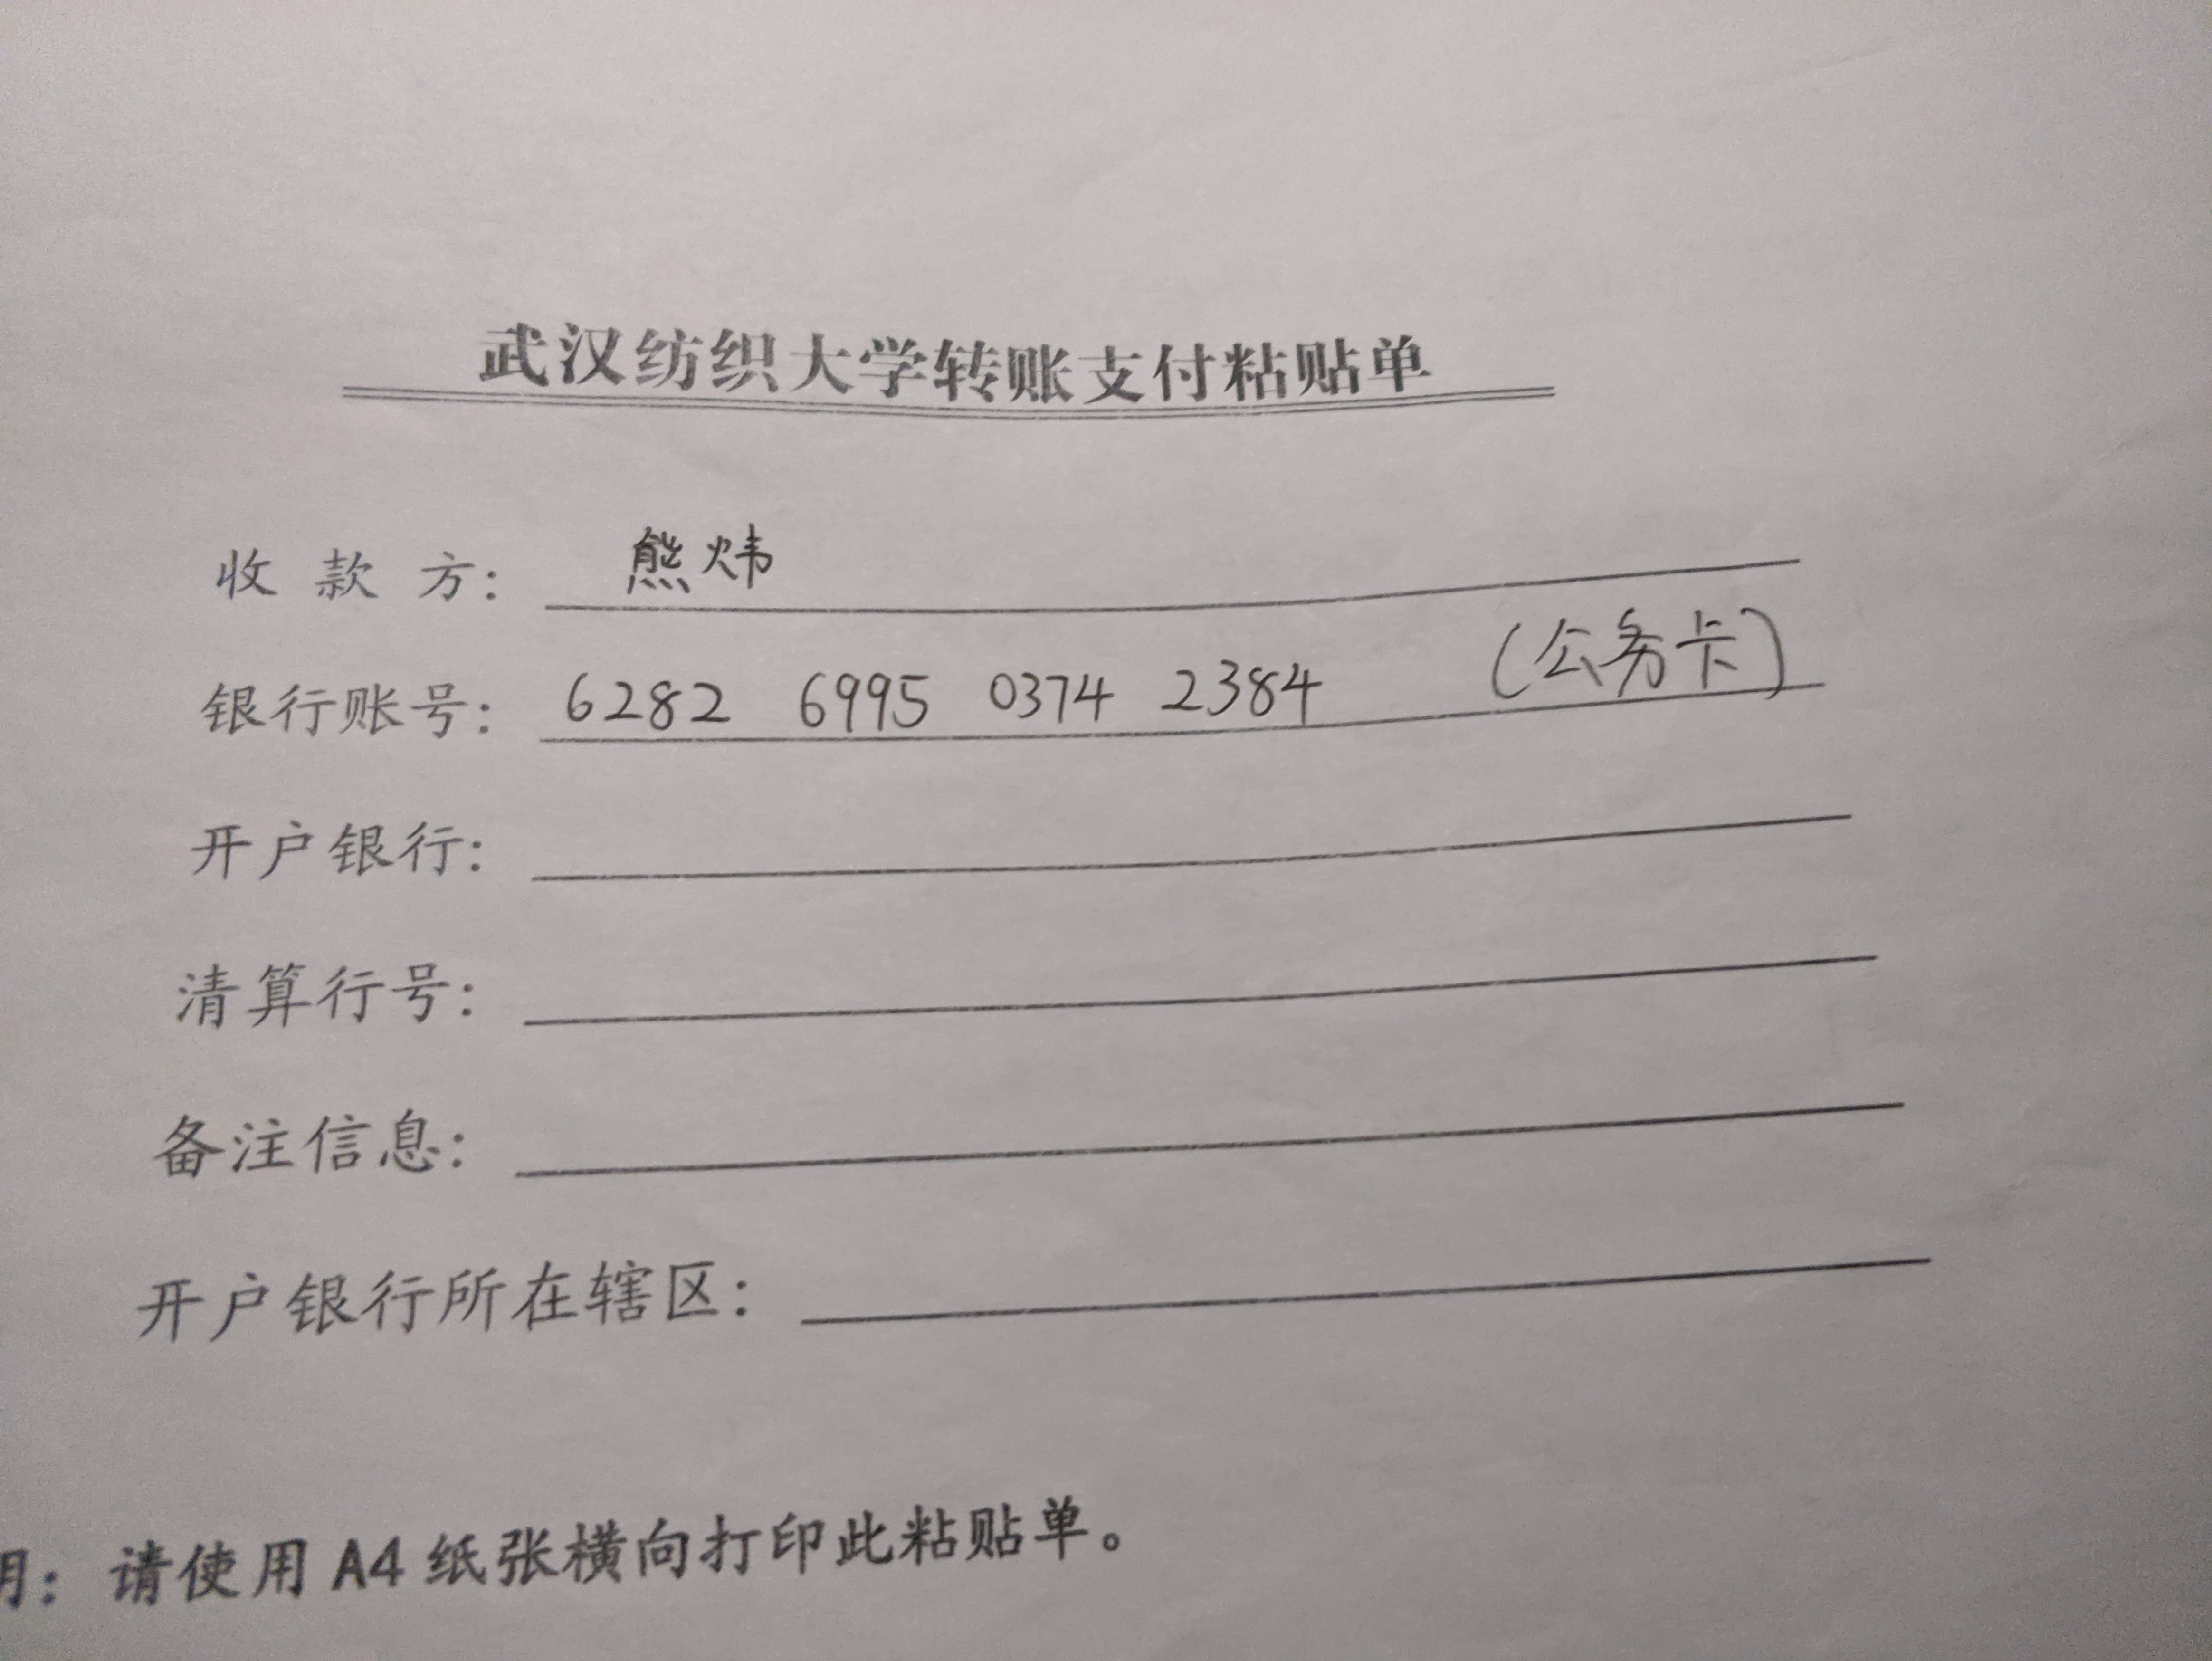 武汉纺织大学转账支付粘贴单
收 款 方： 熊炜
银行账号： 6282 6995 0374 2384 （公务卡）
开户银行：
清算行号：
备注信息：
开户银行所在辖区：
明：请使用 A4 纸张横向打印此粘贴单。